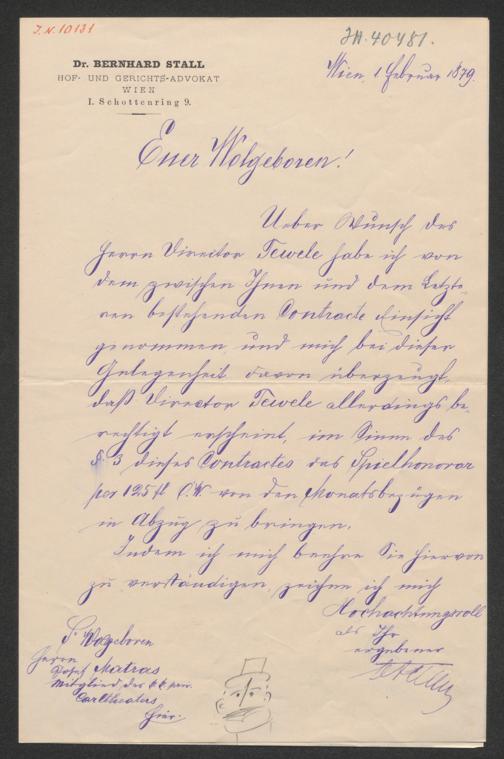 J.N. 10131
JN. 40481.
Dr. BERNHARD STALL
HOF- UND GERICHTS-ADVOKAT
WIEN
I. Schottenring 9.
Wien, 1 Februar 1879
Euer Wolgeboren!
Ueber Wunsch des
Herrn Director Tewele habe ich von
dem zwischen Ihnen und dem Letzte-
ren bestehenden Contracte Einsicht
genommen und mich bei dieser
Gelegenheit davon überzeugt,
daß Director Tewele allerdings be-
rechtigt erscheint, im Sinne des
§. 3 dieses Contractes das Spielhonorar
per 125 fl Ö.W. von den Monatsbezügen
in Abzug zu bringen.
Indem ich mich beehre Sie hievon
zu verständigen, zeichne ich mich
Hochachtungsvoll
als Ihr
ergebener
S. Wolgeboren
Herrn
Josef Matras
Mitglied des k.k. priv.
Carltheaters
hier.